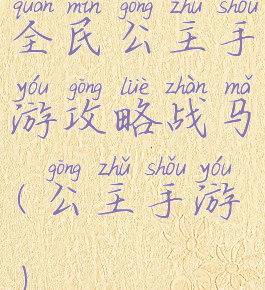 quán mín gōng zhǔ shǒu
全民公主手
yóu gōng lüè zhàn mǎ
游攻略战马
gōng zhǔ shǒu yóu
(公主手游
)